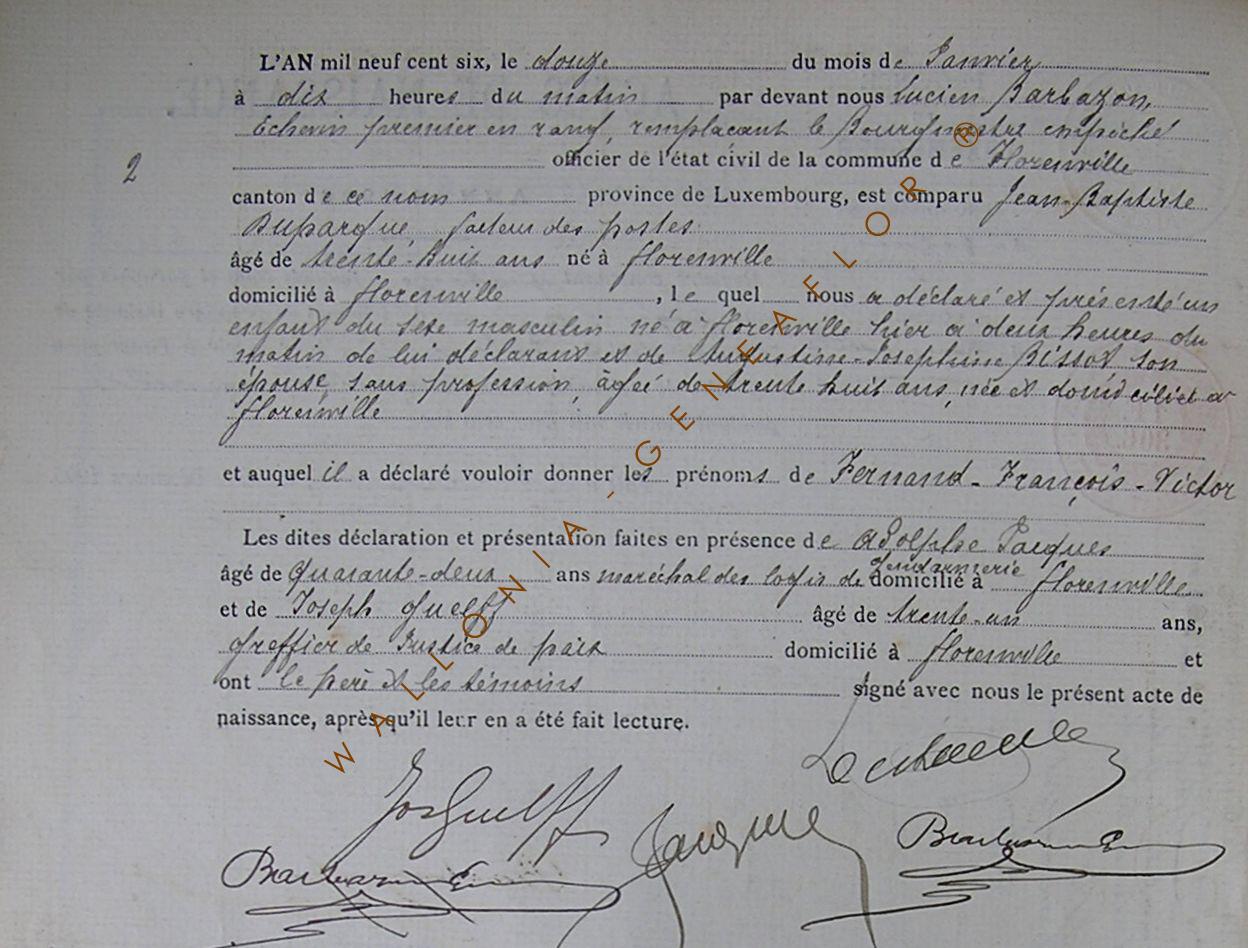 L'AN mil neuf cent six, le douze du mois de Janvier
à dix heures du matin par devant nous Lucien Barbazon,
Echevin premier en rang, remplaçant le Bourgmestre empêché
2
officier de l'état civil de la commune de Florenville
canton de ce nom province de Luxembourg, est comparu Jean-Baptiste
Duparque, facteur des postes
âgé de trente-huit ans né à Florenville
domicilié à Florenville, le quel nous a déclaré et présenté un
enfant du sexe masculin né à Florenville hier à deux heures du
matin de lui déclarant et de Augustine-Josephine Bissot son
épouse, sans profession, âgée de trente huit ans, née et domiciliée à
Florenville
et auquel il a déclaré vouloir donner les prénoms de Fernand-François-Victor
Les dites déclaration et présentation faites en présence de Adolphe Jacques
âgé de quarante-deux ans maréchal des logis de gendarmerie domicilié à Florenville
et de Joseph Guelff âgé de trente-un ans,
Greffier de Justice de paix domicilié à Florenville et
ont le père et les témoins signé avec nous le présent acte de
naissance, après qu'il leur en a été fait lecture.
Jos Guelff
Jacques
Barbazon
Barbazon
WALLONIA - GENEAFLOR ®